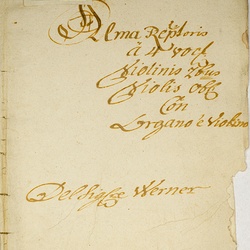 Alma Redẽptoris
à 4 Voci
Violinis 2bus
Violis obli
Con
Organo è Violone
Del Sigre Werner